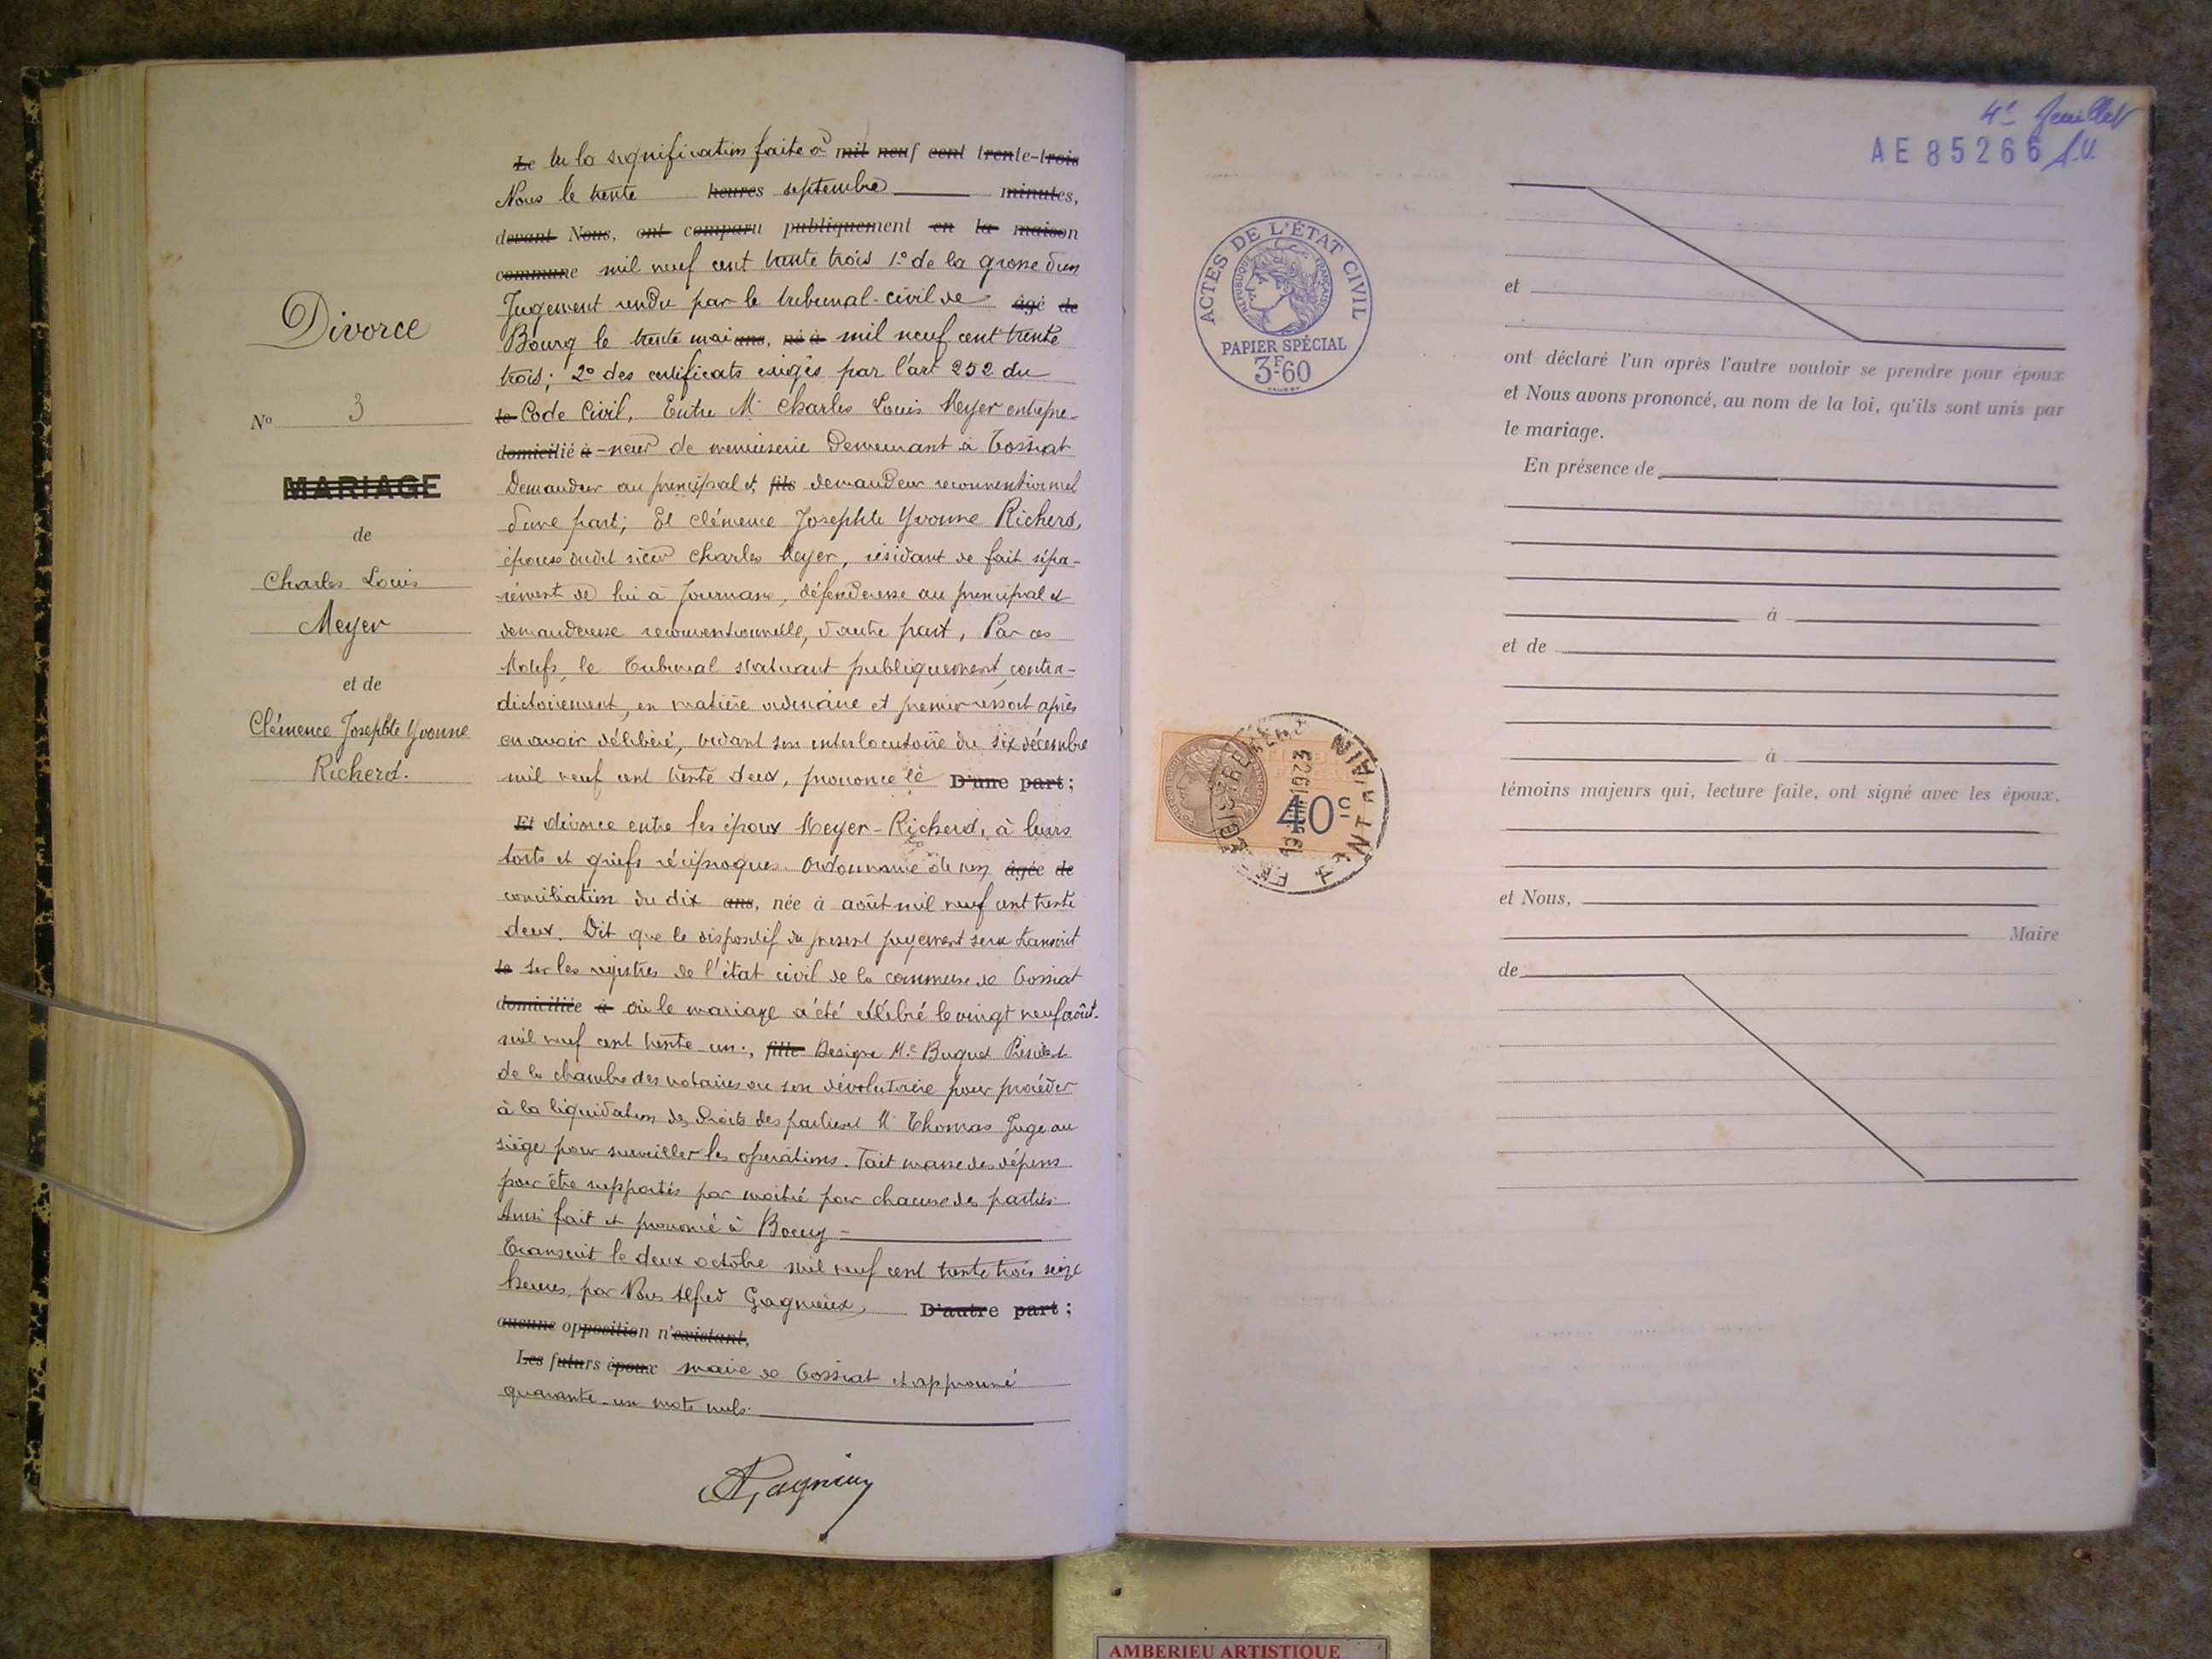 Divorce
No 3
MARIAGE
de
Charles Louis
Meyer
et de
Clémence Josephte Yvonne
Richerd.
Le Vu la signification faite à mil neuf cent trente-trois
Nous le trente heures septembre minutes,
devant Nous, ont comparu publiquement en la maison
commune mil neuf cent trente trois 1º de la grosse d'un
Jugement rendu par le tribunal civil de âgé de
Bourg le trente mai ans, né à mil neuf cent trente
trois; 2º des certificats exigés par l'art 252 du
le Code Civil, Entre Mr Charles Louis Meyer entrepre-
domicilié à -neur de menuiserie Demeurant à Tossiat
Demandeur au principal et fils demandeur reconventionnel
d'une part; Et Clémence Josephte Yvonne Richerd,
épouse dudit sieur Charles Meyer, résidant de fait sépa-
-rément de lui à Journans, défenderesse au principal et
demanderesse reconventionnelle, d'autre part, Par ces
Motifs, le Tribunal statuant publiquement, contra-
dictoirement, en matière ordinaire et premier ressort après
en avoir délibéré, vidant son interlocutoire du six décembre
mil neuf cent trente deux, prononce le D'une part;
Et divorce entre les époux Meyer-Richerd, à leurs
torts et griefs réciproques. Ordonnance de non âgée de
conciliation du dix ans, née à août mil neuf cent trente
deux. Dit que le dispositif du présent jugement sera transcrit
le sur les registres de l'état civil de la commune de Tossiat
domiciliée à où le mariage a été célébré le vingt neuf août
mil neuf cent trente-un., fille Désigne Me Buguet Président
de la chambre des notaires ou son dévolutaire pour procéder
à la liquidation des droits des parties et Mr Thomas Juge au
siège pour surveiller les opérations. Fait masse des dépens
pour être supportés par moitié par chacune des parties
Ainsi fait et prononcé à Bourg -
Transcrit le deux octobre mil neuf cent trente trois seize
heures, par Nous Alfred Gagnieux, D'autre part;
aucune opposition n'existant,
Les futurs époux maire de Tossiat et approuvé
quarante-un mots nuls.
4e feuillet
AE 85266
ACTES DE L'ÉTAT CIVIL
RÉPUBLIQUE FRANÇAISE
PAPIER SPÉCIAL
3F60
40c
et
ont déclaré l'un après l'autre vouloir se prendre pour époux
et Nous avons prononcé, au nom de la loi, qu'ils sont unis par
le mariage.
En présence de
à
et de
à
témoins majeurs qui, lecture faite, ont signé avec les époux,
et Nous,
Maire
de
AMBERIEU ARTISTIQUE